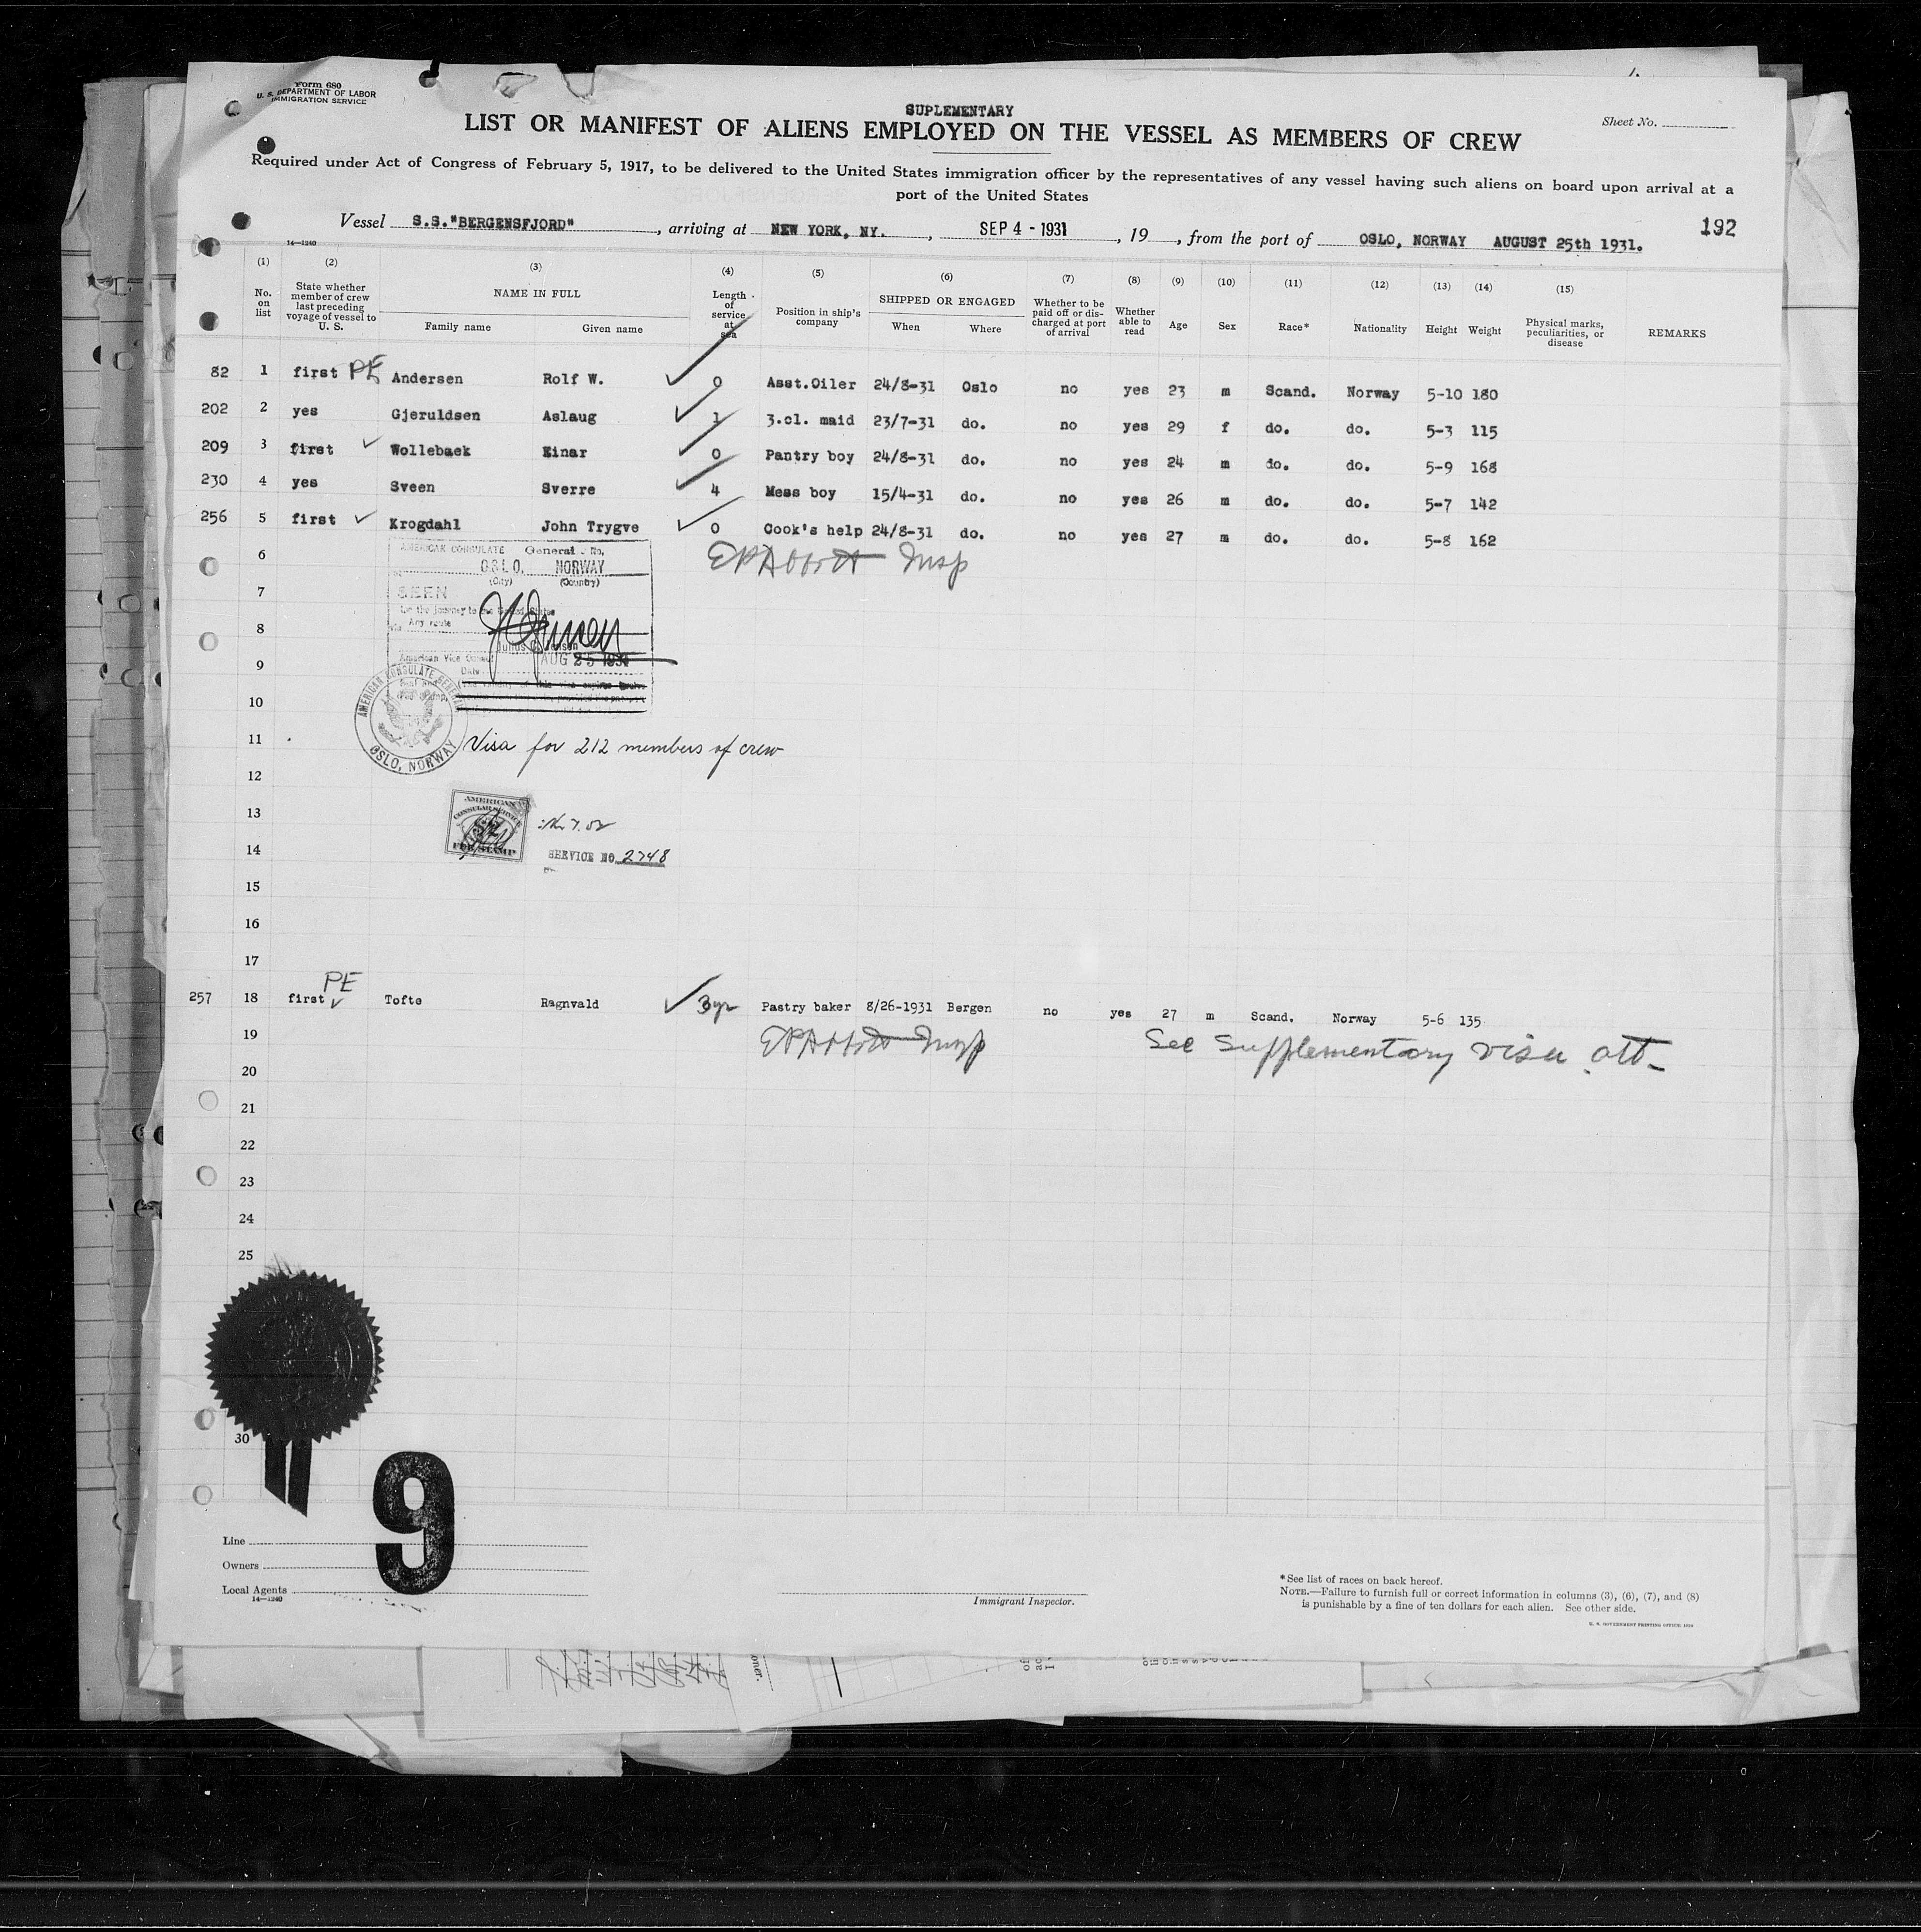 Form 680
U. S. DEPARTMENT OF LABOR
IMMIGRATION SERVICE
SUPLEMENTARY
LIST OR MANIFEST OF ALIENS EMPLOYED ON THE VESSEL AS MEMBERS OF CREW
Sheet No.
Required under Act of Congress of February 5, 1917, to be delivered to the United States immigration officer by the representatives of any vessel having such aliens on board upon arrival at a
port of the United States
Vessel S.S."BERGENSFJORD", arriving at NEW YORK, NY., SEP 4 - 1931, 19, from the port of OSLO, NORWAY AUGUST 25th 1931. 192
14—1240
(1) (2) (3) (4) (5) (6) (7) (8) (9) (10) (11) (12) (13) (14) (15)
No. on list State whether member of crew last preceding voyage of vessel to U. S. NAME IN FULL Family name Given name Length of service at sea Position in ship's company SHIPPED OR ENGAGED When Where Whether to be paid off or discharged at port of arrival Whether able to read Age Sex Race* Nationality Height Weight Physical marks, peculiarities, or disease REMARKS
82 1 first PE Andersen Rolf W. ✓ 0 Asst.Oiler 24/8-31 Oslo no yes 23 m Scand. Norway 5-10 180
202 2 yes Gjeruldsen Aslaug ✓ 1 3.cl. maid 23/7-31 do. no yes 29 f do. do. 5-3 115
209 3 first ✓ Wollebaek Einar ✓ 0 Pantry boy 24/8-31 do. no yes 24 m do. do. 5-9 168
230 4 yes Sveen Sverre ✓ 4 Mess boy 15/4-31 do. no yes 26 m do. do. 5-7 142
256 5 first ✓ Krogdahl John Trygve ✓ 0 Cook's help 24/8-31 do. no yes 27 m do. do. 5-8 162
6 EPAbbott Insp
AMERICAN CONSULATE General. No.
OSLO, NORWAY
(City) (Country)
7
SEEN
For the journey to the United States
Any route
8
American Vice Consul
AUG 25 1931
Date
9
10
AMERICAN CONSULATE GENERAL
OSLO, NORWAY
11 Visa for 212 members of crew
12
13
AMERICAN
CONSULAR SERVICE
FEE STAMP
14 SERVICE NO. 2748
15
16
17
PE
257 18 first ✓ Tofte Ragnvald ✓ 3yr Pastry baker 8/26-1931 Bergen no yes 27 m Scand. Norway 5-6 135
19 EPAbbott Insp See Supplementary visa att-
20
21
22
23
24
25
30
9
Line
Owners
Local Agents
14—1240
Immigrant Inspector.
*See list of races on back hereof.
NOTE.—Failure to furnish full or correct information in columns (3), (6), (7), and (8)
is punishable by a fine of ten dollars for each alien. See other side.